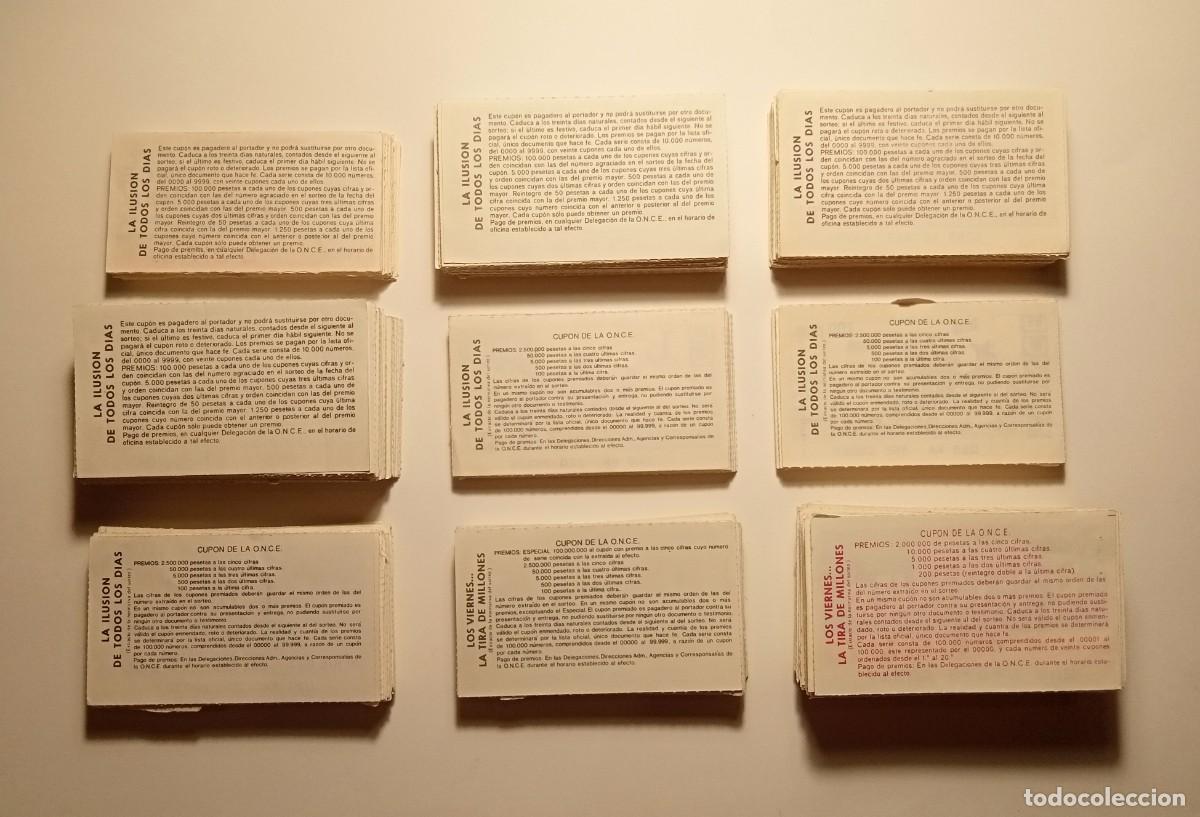 LA ILUSION
DE TODOS LOS DIAS
Este cupón es pagadero al portador y no podrá sustituirse por otro docu-
mento. Caduca a los treinta días naturales, contados desde el siguiente al
sorteo; si el último es festivo, caduca el primer día hábil siguiente. No se
pagará el cupón roto o deteriorado. Los premios se pagan por la lista ofi-
cial, único documento que hace fe. Cada serie consta de 10.000 números,
del 0000 al 9999, con veinte cupones cada uno de ellos.
PREMIOS: 100.000 pesetas a cada uno de los cupones cuyas cifras y or-
den coincidan con las del número agraciado en el sorteo de la fecha del
cupón. 5.000 pesetas a cada uno de los cupones cuyas tres últimas cifras
y orden coincidan con las del premio mayor. 500 pesetas a cada uno de
los cupones cuyas dos últimas cifras y orden coincidan con las del premio
mayor. Reintegro de 50 pesetas a cada uno de los cupones cuya última
cifra coincida con la del premio mayor. 1.250 pesetas a cada uno de los
cupones cuyo número coincida con el anterior o posterior al del premio
mayor. Cada cupón sólo puede obtener un premio.
Pago de premios, en cualquier Delegación de la O.N.C.E., en el horario de
oficina establecido a tal efecto.
LA ILUSION
DE TODOS LOS DIAS
Este cupón es pagadero al portador y no podrá sustituirse por otro docu-
mento. Caduca a los treinta días naturales, contados desde el siguiente al
sorteo; si el último es festivo, caduca el primer día hábil siguiente. No se
pagará el cupón roto o deteriorado. Los premios se pagan por la lista ofi-
cial, único documento que hace fe. Cada serie consta de 10.000 números,
del 0000 al 9999, con veinte cupones cada uno de ellos.
PREMIOS: 100.000 pesetas a cada uno de los cupones cuyas cifras y or-
den coincidan con las del número agraciado en el sorteo de la fecha del
cupón. 5.000 pesetas a cada uno de los cupones cuyas tres últimas cifras
y orden coincidan con las del premio mayor. 500 pesetas a cada uno de
los cupones cuyas dos últimas cifras y orden coincidan con las del premio
mayor. Reintegro de 50 pesetas a cada uno de los cupones cuya última
cifra coincida con la del premio mayor. 1.250 pesetas a cada uno de los
cupones cuyo número coincida con el anterior o posterior al del premio
mayor. Cada cupón sólo puede obtener un premio.
Pago de premios, en cualquier Delegación de la O.N.C.E., en el horario de
oficina establecido a tal efecto.
LA ILUSION
DE TODOS LOS DIAS
Este cupón es pagadero al portador y no podrá sustituirse por otro docu-
mento. Caduca a los treinta días naturales, contados desde el siguiente al
sorteo; si el último es festivo, caduca el primer día hábil siguiente. No se
pagará el cupón roto o deteriorado. Los premios se pagan por la lista ofi-
cial, único documento que hace fe. Cada serie consta de 10.000 números,
del 0000 al 9999, con veinte cupones cada uno de ellos.
PREMIOS: 100.000 pesetas a cada uno de los cupones cuyas cifras y or-
den coincidan con las del número agraciado en el sorteo de la fecha del
cupón. 5.000 pesetas a cada uno de los cupones cuyas tres últimas cifras
y orden coincidan con las del premio mayor. 500 pesetas a cada uno de
los cupones cuyas dos últimas cifras y orden coincidan con las del premio
mayor. Reintegro de 50 pesetas a cada uno de los cupones cuya última
cifra coincida con la del premio mayor. 1.250 pesetas a cada uno de los
cupones cuyo número coincida con el anterior o posterior al del premio
mayor. Cada cupón sólo puede obtener un premio.
Pago de premios, en cualquier Delegación de la O.N.C.E., en el horario de
oficina establecido a tal efecto.
LA ILUSION
DE TODOS LOS DIAS
Este cupón es pagadero al portador y no podrá sustituirse por otro docu-
mento. Caduca a los treinta días naturales, contados desde el siguiente al
sorteo; si el último es festivo, caduca el primer día hábil siguiente. No se
pagará el cupón roto o deteriorado. Los premios se pagan por la lista ofi-
cial, único documento que hace fe. Cada serie consta de 10.000 números,
del 0000 al 9999, con veinte cupones cada uno de ellos.
PREMIOS: 100.000 pesetas a cada uno de los cupones cuyas cifras y or-
den coincidan con las del número agraciado en el sorteo de la fecha del
cupón. 5.000 pesetas a cada uno de los cupones cuyas tres últimas cifras
y orden coincidan con las del premio mayor. 500 pesetas a cada uno de
los cupones cuyas dos últimas cifras y orden coincidan con las del premio
mayor. Reintegro de 50 pesetas a cada uno de los cupones cuya última
cifra coincida con la del premio mayor. 1.250 pesetas a cada uno de los
cupones cuyo número coincida con el anterior o posterior al del premio
mayor. Cada cupón sólo puede obtener un premio.
Pago de premios, en cualquier Delegación de la O.N.C.E., en el horario de
oficina establecido a tal efecto.
LA ILUSION
DE TODOS LOS DIAS
CUPON DE LA O.N.C.E.
PREMIOS: 2.500.000 pesetas a las cinco cifras
50.000 pesetas a las cuatro últimas cifras.
5.000 pesetas a las tres últimas cifras.
500 pesetas a las dos últimas cifras.
100 pesetas a la última cifra.
Las cifras de los cupones premiados deberán guardar el mismo orden de las del
número extraído en el sorteo.
En un mismo cupón no son acumulables dos o más premios. El cupón premiado es
pagadero al portador contra su presentación y entrega, no pudiendo sustituirse por
ningún otro documento o testimonio.
Caduca a los treinta días naturales contados desde el siguiente al del sorteo. No será
válido el cupón enmendado, roto o deteriorado. La realidad y cuantía de los premios
se determinará por la lista oficial, único documento que hace fe. Cada serie consta
de 100.000 números, comprendidos desde el 00000 al 99.999, a razón de un cupón
por cada número.
Pago de premios: En las Delegaciones, Direcciones Adm., Agencias y Corresponsalías de
la O.N.C.E. durante el horario establecido al efecto.
LA ILUSION
DE TODOS LOS DIAS
CUPON DE LA O.N.C.E.
PREMIOS: 2.500.000 pesetas a las cinco cifras
50.000 pesetas a las cuatro últimas cifras.
5.000 pesetas a las tres últimas cifras.
500 pesetas a las dos últimas cifras.
100 pesetas a la última cifra.
Las cifras de los cupones premiados deberán guardar el mismo orden de las del
número extraído en el sorteo.
En un mismo cupón no son acumulables dos o más premios. El cupón premiado es
pagadero al portador contra su presentación y entrega, no pudiendo sustituirse por
ningún otro documento o testimonio.
Caduca a los treinta días naturales contados desde el siguiente al del sorteo. No será
válido el cupón enmendado, roto o deteriorado. La realidad y cuantía de los premios
se determinará por la lista oficial, único documento que hace fe. Cada serie consta
de 100.000 números, comprendidos desde el 00000 al 99.999, a razón de un cupón
por cada número.
Pago de premios: En las Delegaciones, Direcciones Adm., Agencias y Corresponsalías de
la O.N.C.E. durante el horario establecido al efecto.
LA ILUSION
DE TODOS LOS DIAS
CUPON DE LA O.N.C.E.
PREMIOS: 2.500.000 pesetas a las cinco cifras
50.000 pesetas a las cuatro últimas cifras.
5.000 pesetas a las tres últimas cifras.
500 pesetas a las dos últimas cifras.
100 pesetas a la última cifra.
Las cifras de los cupones premiados deberán guardar el mismo orden de las del
número extraído en el sorteo.
En un mismo cupón no son acumulables dos o más premios. El cupón premiado es
pagadero al portador contra su presentación y entrega, no pudiendo sustituirse por
ningún otro documento o testimonio.
Caduca a los treinta días naturales contados desde el siguiente al del sorteo. No será
válido el cupón enmendado, roto o deteriorado. La realidad y cuantía de los premios
se determinará por la lista oficial, único documento que hace fe. Cada serie consta
de 100.000 números, comprendidos desde el 00000 al 99.999, a razón de un cupón
por cada número.
Pago de premios: En las Delegaciones, Direcciones Adm., Agencias y Corresponsalías de
la O.N.C.E. durante el horario establecido al efecto.
LOS VIERNES...
LA TIRA DE MILLONES
CUPON DE LA O.N.C.E.
PREMIOS: ESPECIAL 100.000.000 al cupón con premio a las cinco cifras cuyo número
de serie coincida con la extraída al efecto.
2.500.000 pesetas a las cinco cifras
50.000 pesetas a las cuatro últimas cifras.
5.000 pesetas a las tres últimas cifras.
500 pesetas a las dos últimas cifras.
100 pesetas a la última cifra.
Las cifras de los cupones premiados deberán guardar el mismo orden de las del
número extraído en el sorteo. En un mismo cupón no son acumulables dos o más
premios, exceptuando el Especial. El cupón premiado es pagadero al portador contra su
presentación y entrega, no pudiendo sustituirse por ningún otro documento o testimonio.
Caduca a los treinta días naturales contados desde el siguiente al del sorteo. No será
válido el cupón enmendado, roto o deteriorado. La realidad y cuantía de los premios
se determinará por la lista oficial, único documento que hace fe. Cada serie consta
de 100.000 números, comprendidos desde el 00000 al 99.999, a razón de un cupón
por cada número.
Pago de premios: En las Delegaciones, Direcciones Adm., Agencias y Corresponsalías de
la O.N.C.E. durante el horario establecido al efecto.
LOS VIERNES...
LA TIRA DE MILLONES
CUPON DE LA O.N.C.E.
PREMIOS: 2.000.000 de pesetas a las cinco cifras.
10.000 pesetas a las cuatro últimas cifras.
5.000 pesetas a las tres últimas cifras.
1.000 pesetas a las dos últimas cifras.
200 pesetas (reintegro doble a la última cifra).
Las cifras de los cupones premiados deberán guardar el mismo orden de las
del número extraído en el sorteo.
En un mismo cupón no son acumulables dos o más premios. El cupón premiado
es pagadero al portador contra su presentación y entrega, no pudiendo susti-
tuirse por ningún otro documento o testimonio. Caduca a los treinta días natu-
rales contados desde el siguiente al del sorteo. No será válido el cupón enmen-
dado, roto o deteriorado. La realidad y cuantía de los premios se determinará
por la lista oficial, único documento que hace fe.
Cada serie consta de 100.000 números comprendidos desde el 00001 al
100.000, este representado por el 00000, y cada número de veinte cupones
ordenados desde el 1.º al 20.º
Pago de premios: En las Delegaciones de la O.N.C.E. durante el horario esta-
blecido al efecto.
todocoleccion